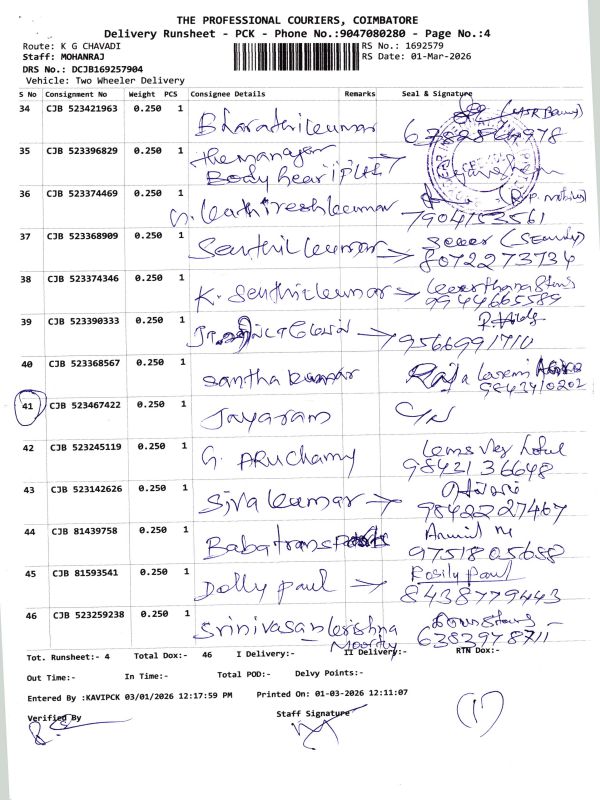 THE PROFESSIONAL COURIERS, COIMBATORE
Delivery Runsheet - PCK - Phone No.:9047080280 - Page No.:4
Route: K G CHAVADI RS No.: 1692579
Staff: MOHANRAJ RS Date: 01-Mar-2026
DRS No.: DCJB169257904
Vehicle: Two Wheeler Delivery
S No Consignment No Weight PCS Consignee Details Remarks Seal & Signature
34 CJB 523421963 0.250 1 Bharathikumar
35 CJB 523396829 0.250 1 the manager
Body
36 CJB 523374469 0.250 1 7904153561
37 CJB 523368909 0.250 1 Senthil kumar → (Security)
8072273734
38 CJB 523374346 0.250 1 K. Senthilkumar → Keerthana Stores
9944665589
39 CJB 523390333 0.250 1 → 9566991710
40 CJB 523368567 0.250 1 Santha kumar Raja
9843410202
41 CJB 523467422 0.250 1 Jayaram C/N
42 CJB 523245119 0.250 1 G. ARuchamy
9842136648
43 CJB 523142626 0.250 1 Siva kumar →
9842227467
44 CJB 81439758 0.250 1 Babatrans
9751805688
45 CJB 81593541 0.250 1 Dolly paul → Rosily paul
8438779443
46 CJB 523259238 0.250 1 Srinivasan krishna
Moorthy 6383978711
Tot. Runsheet:- 4 Total Dox:- 46 I Delivery:- II Delivery:- RTN Dox:-
Out Time:- In Time:- Total POD:- Delvy Points:-
Entered By :KAVIPCK 03/01/2026 12:17:59 PM Printed On: 01-03-2026 12:11:07
Verified By Staff Signature
(1)